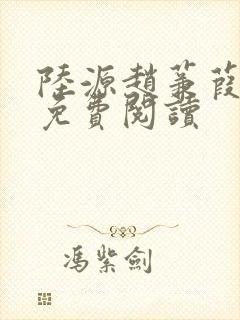 陸源趙蒹葭
免費閱讀
馮紫劍